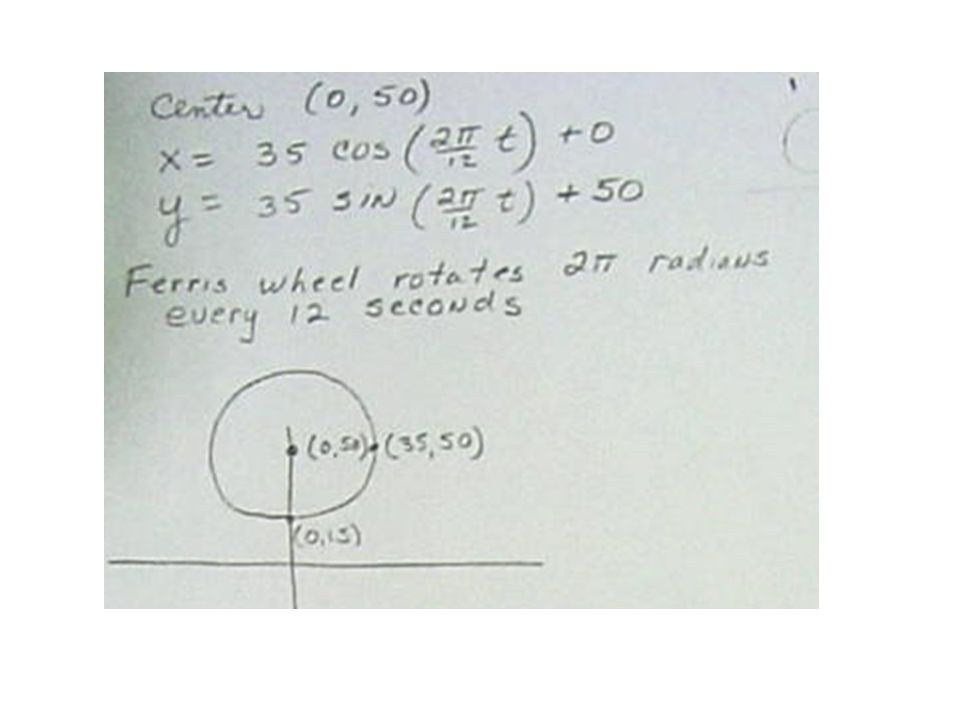 Center (0, 50)
x = 35 cos (2π/12 t) + 0
y = 35 sin (2π/12 t) + 50
Ferris wheel rotates 2π radians
every 12 seconds
(0,50) (35,50)
(0,15)